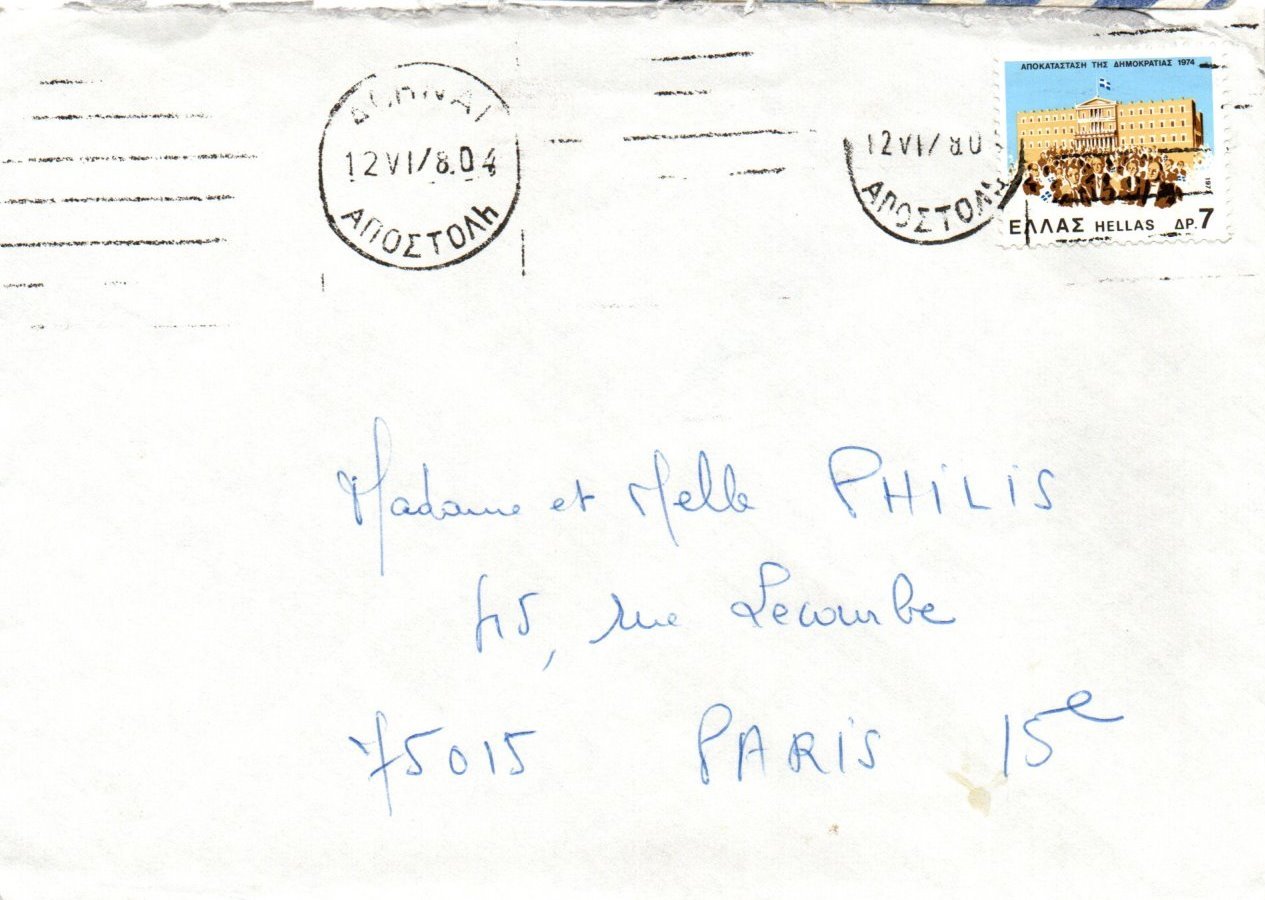 ΑΘΗΝΑΙ
12 VI/80 4
ΑΠΟΣΤΟΛΗ
12 VI/ 80
ΑΠΟΣΤΟΛΗ
ΑΠΟΚΑΤΑΣΤΑΣΗ ΤΗΣ ΔΗΜΟΚΡΑΤΙΑΣ 1974
ΕΛΛΑΣ HELLAS ΔΡ.7
Madame et Melle PHILIS
45, rue Lecourbe
75015 PARIS 15e